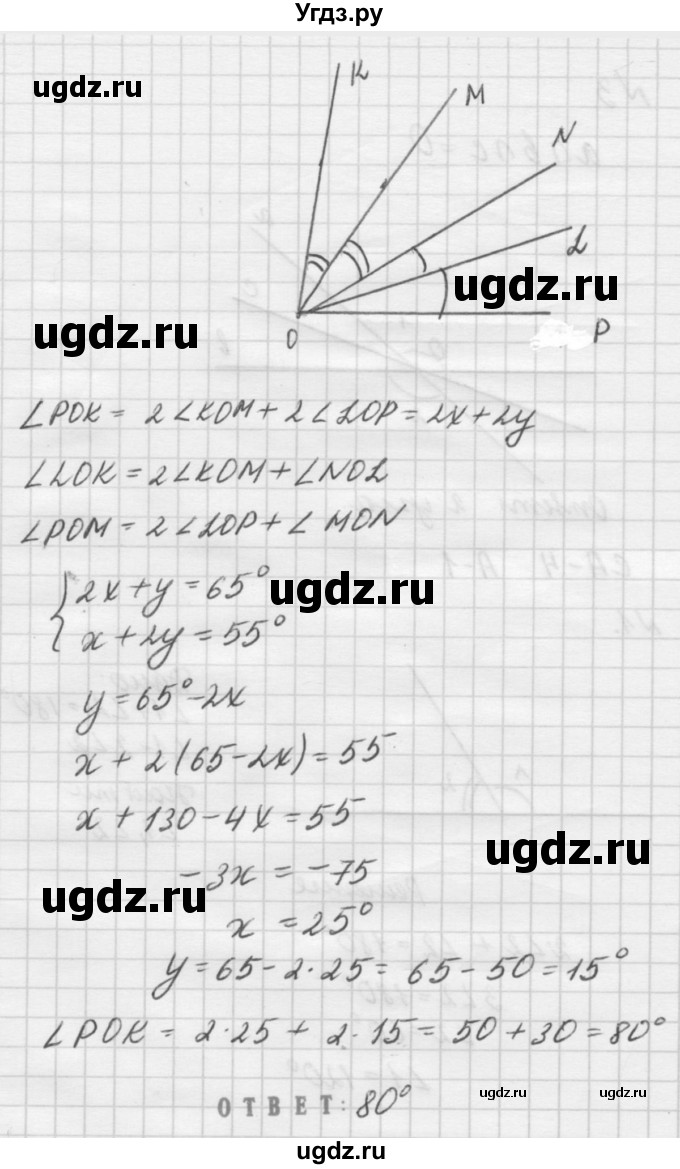 Угдз.ру
ugdz.ru
K
M
N
L
ugdz.ru
ugdz.ru
O
P
∠POK = 2∠KOM + 2∠LOP = 2x + 2y
∠LOK = 2∠KOM + ∠NOL
∠POM = 2∠LOP + ∠MON
{ 2x + y = 65°
x + 2y = 55°
ugdz.ru
y = 65° - 2x
x + 2(65 - 2x) = 55
x + 130 - 4x = 55
ugdz.ru
-3x = -75
ugdz.ru
x = 25°
y = 65 - 2·25 = 65 - 50 = 15°
∠POK = 2·25 + 2·15 = 50 + 30 = 80°
ОТВЕТ: 80°
ugdz.ru
ugdz.ru
ugdz.ru